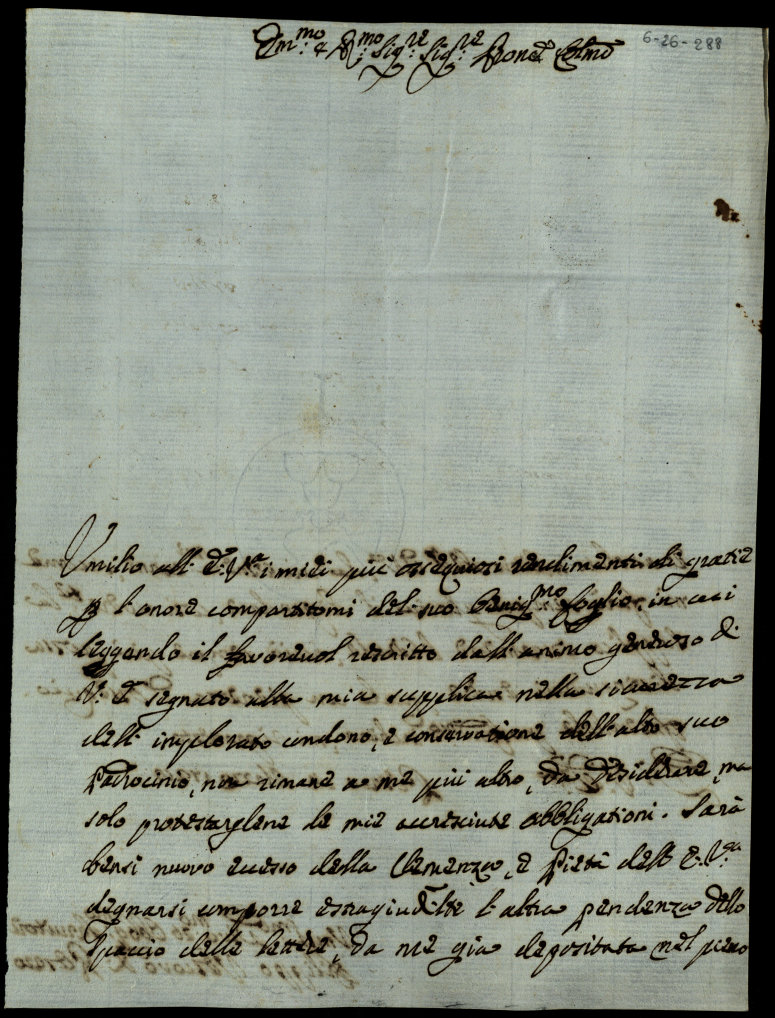 6-26-288
Em.mo e R.mo Sig.re Sig.re Pron.e Col.mo
Umilio all' E. V.a i miei più ossequiosi rendimenti di gratie
p l'onore compartitomi del suo benig.mo foglio, in cui
leggendo il favorevol rescritto dall' animo generoso di
V. E segnato alla mia supplica nella sicurezza
dell' implorato condono, e conservatione dell' alto suo
Padrocinio, non rimane a me più altro, da desiderare, ma
solo protestarglene le mie accresciute obbligationi. Sarà
bensi nuovo ecesso della Clemenza, e Pietà dell' E. V.ra
degnarsi comporre estragiudilte l'altra pendenza dello
Spaccio delle lettere, da me già depositata nel pieno